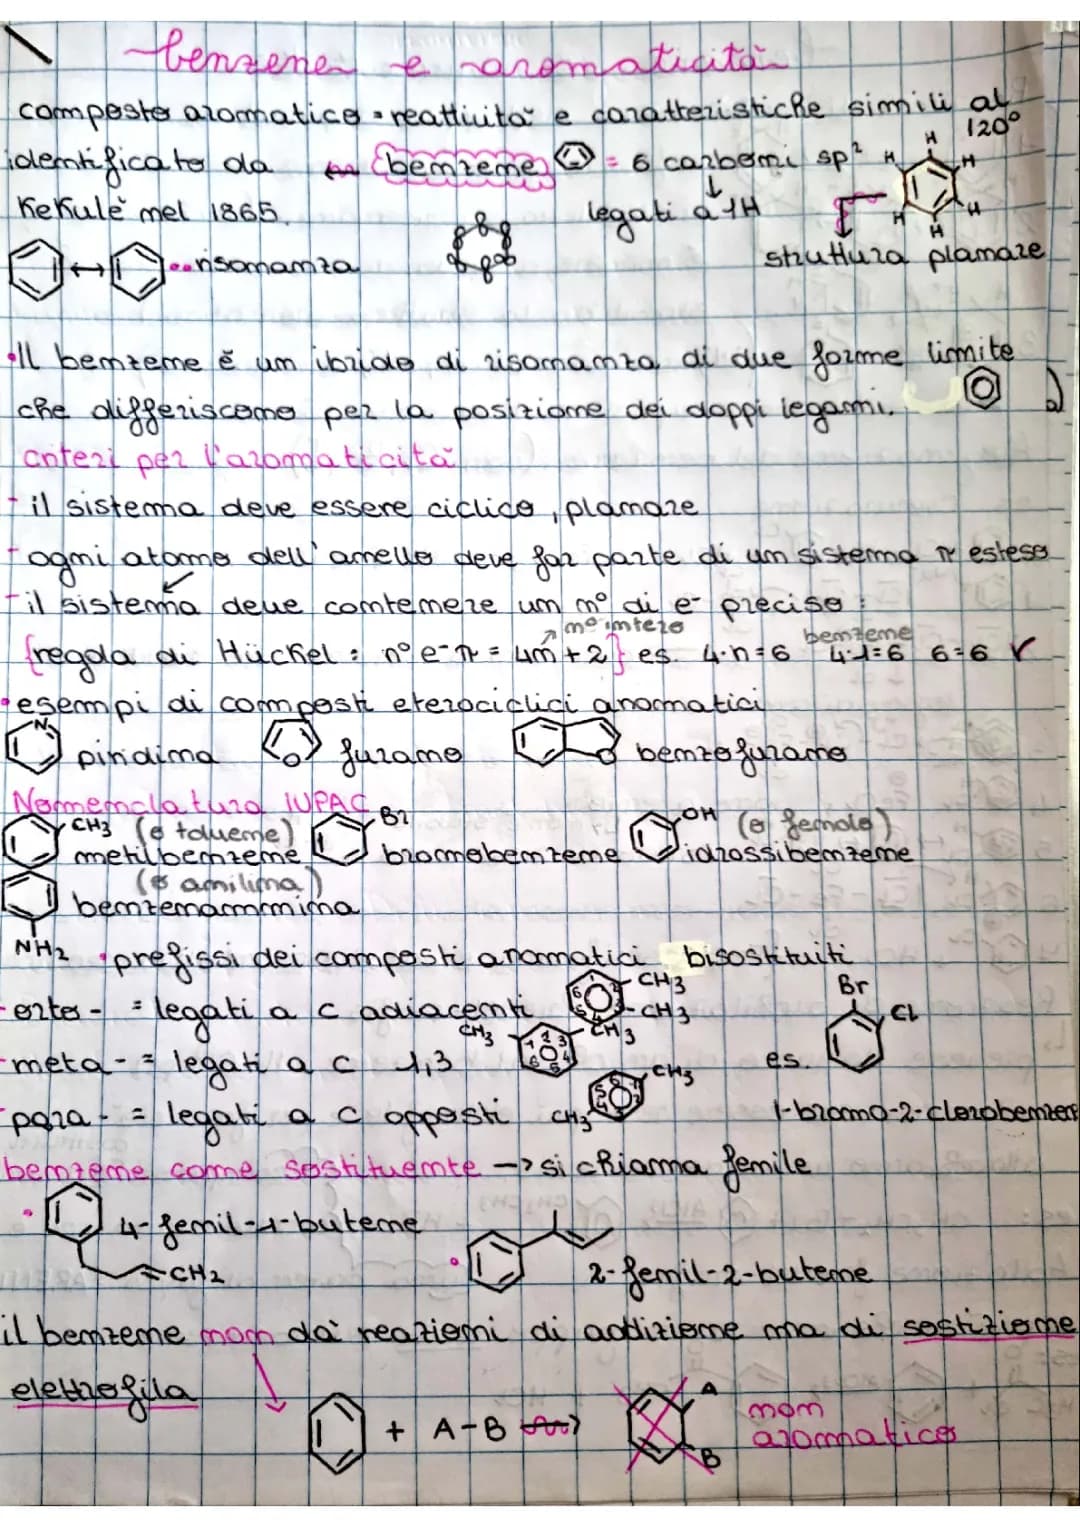 benzene e aromaticità
composto aromatico = reattività e caratteristiche simili al
120°
identificato da benzene = 6 carboni sp² H H H
Kekulè nel 1865. legati a 1H H H H
risonanza struttura planare
•Il benzene è un ibrido di risonanza di due forme limite
che differiscono per la posizione dei doppi legami.
criteri per l'aromaticità
- il sistema deve essere ciclico, planare
- ogni atomo dell'anello deve far parte di un sistema π esteso
- il sistema deve contenere un n° di e⁻ preciso :
n° intero benzene
{regola di Hückel : n° e⁻π = 4n+2} es. 4·n=6 4·1=6 6=6 ✓
•esempi di composti eterociclici aromatici
N piridina O furano O benzofurano
Nomenclatura IUPAC
CH3 (o toluene) Br OH (o fenolo)
metilbenzene bromobenzene idrossibenzene
(o anilina)
benzenammina
NH2 •prefissi dei composti aromatici bisostituiti
- orto- = legati a C adiacenti CH3 CH3 Br Cl
- meta- = legati a C 1,3 CH3 CH3 es.
- para- = legati a C opposti CH3 CH3 1-bromo-2-clorobenzene
benzene come sostituente -> si chiama fenile
• 4-fenil-1-butene
CH2 • 2-fenil-2-butene
il benzene non dà reazioni di addizione ma di sostizione
elettrofila
+ A-B A B non
aromatico